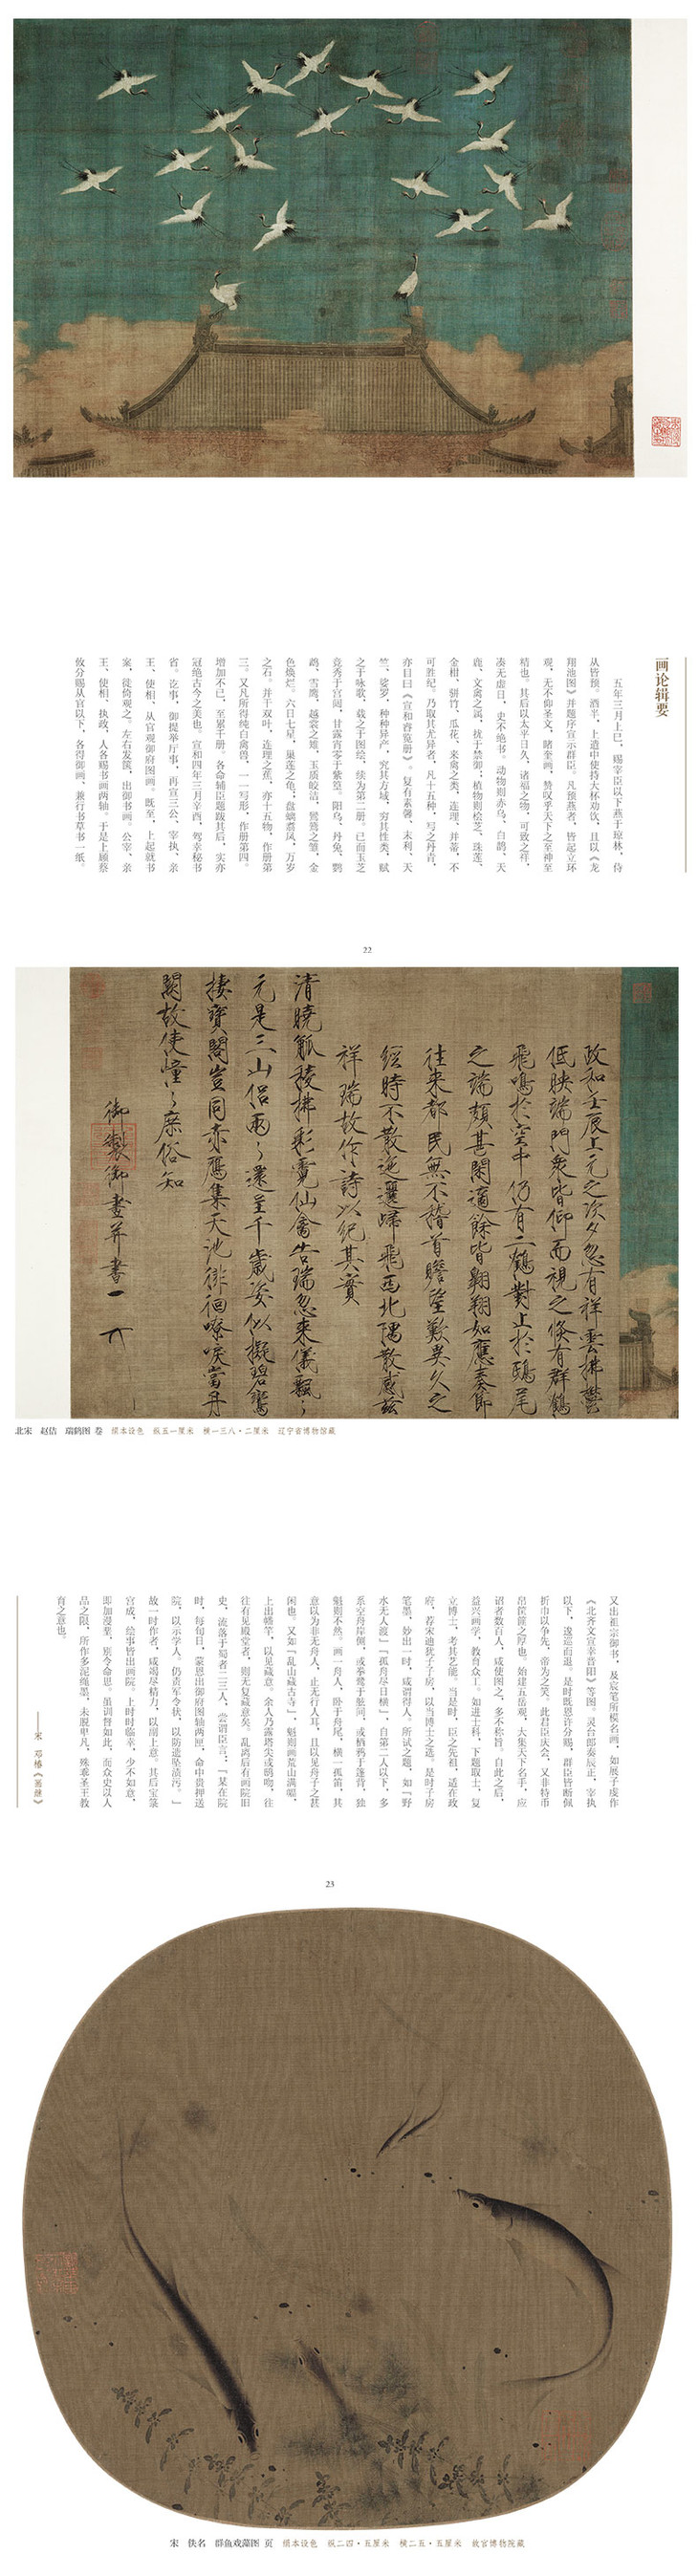 画论辑要
五年三月上巳，赐宰臣以下燕于琼林，侍
从皆预。酒半，上遣中使持大杯劝饮，且以《龙
翔池图》并题序宣示群臣。凡预燕者，皆起立环
观，无不仰圣文，睹奎画，赞叹乎天下之至神至
精也。其后以太平日久，诸福之物，可致之祥，
凑无虚日，史不绝书。动物则赤乌、白鹊、天
鹿、文禽之属，扰于禁御；植物则桧芝、珠莲、
金柑、骈竹、瓜花、来禽之类，连理、并蒂，不
可胜纪。乃取其尤异者，凡十五种，写之丹青，
亦目曰《宣和睿览册》。复有素馨、末利、天
竺、娑罗，种种异产，究其方域，穷其性类，赋
之于咏歌，载之于图绘，续为第二册。已而玉芝
竞秀于宫闼，甘露宵零于紫篁。阳乌、丹兔、鹦
鹉、雪鹰，越裳之雉，玉质皎洁，鸑鷟之雏，金
色焕烂。六目七星，巢莲之龟；盘螭翥凤，万岁
之石。并干双叶，连理之蕉，亦十五物，作册第
三。又凡所得纯白禽兽，一一写形，作册第四。
增加不已，至累千册。各命辅臣题跋其后，实亦
冠绝古今之美也。宣和四年三月辛酉，驾幸秘书
省。讫事，御提举厅事，再宣三公、宰执、亲
王、使相、从官观御府图画。既至，上起就书
案，徙倚观之。左右发箧，出御书画。公宰、亲
王、使相、执政，人各赐书画两轴。于是上顾蔡
攸分赐从官以下，各得御画、兼行书草书一纸。
22
政和壬辰上元之次夕忽有祥雲拂鬱
低映端門衆皆仰而視之倏有群鶴
飛鳴於空中仍有二鶴對止於鴟尾
之端頗甚閑適餘皆翱翔如應奏節
往来都民無不稽首瞻望歎異久之
經時不散迤邐歸飛西北隅散感兹
祥瑞故作詩以紀其實
清曉觚稜拂彩霓仙禽告瑞忽来儀飄〻
元是三山侶兩〻還呈千歲姿似擬碧鸞
棲寳閣豈同赤鴈集天池徘徊嘹唳當丹
闕故使憧〻庶俗知
御製御畫并書
北宋　赵佶　瑞鹤图 卷　绢本设色　纵五一厘米　横一三八·二厘米　辽宁省博物馆藏
又出祖宗御书，及宸笔所模名画，如展子虔作
《北齐文宣幸晋阳》等图。灵台郎奏辰正，宰执
以下，逡巡而退。是时既恩许分赐，群臣皆断佩
折巾以争先，帝为之笑。此君臣庆会，又非特币
帛筐篚之厚也。始建五岳观，大集天下名手，应
诏者数百人，咸使图之，多不称旨。自此之后，
益兴画学，教育众工。如进士科，下题取士，复
立博士，考其艺能。当是时，臣之先祖，适在政
府，荐宋迪犹子子房，以当博士之选。是时子房
笔墨，妙出一时，咸谓得人。所试之题，如『野
水无人渡』『孤舟尽日横』，自第二人以下，多
系空舟岸侧，或拳鹭于舷间，或栖鸦于篷背，独
魁则不然。画一舟人，卧于舟尾，横一孤笛，其
意以为非无舟人，止无行人耳，且以见舟子之甚
闲也。又如『乱山藏古寺』，魁则画荒山满幅，
上出幡竿，以见藏意。余人乃露塔尖或鸱吻，往
往有见殿堂者，则无复藏意矣。乱离后有画院旧
史，流落于蜀者二三人，尝谓臣言：『某在院
时，每旬日，蒙恩出御府图轴两匣，命中贵押送
院，以示学人。仍责军令状，以防遗坠渍污。』
故一时作者，咸竭尽精力，以副上意。其后宝箓
宫成，绘事皆出画院。上时时临幸，少不如意，
即加漫垩，别令命思。虽训督如此，而众史以人
品之限，所作多泥绳墨，未脱卑凡，殊乖圣王教
育之意也。
——宋　邓椿《画继》
23
宋　佚名　群鱼戏藻图 页　绢本设色　纵二四·五厘米　横二五·五厘米　故宫博物院藏